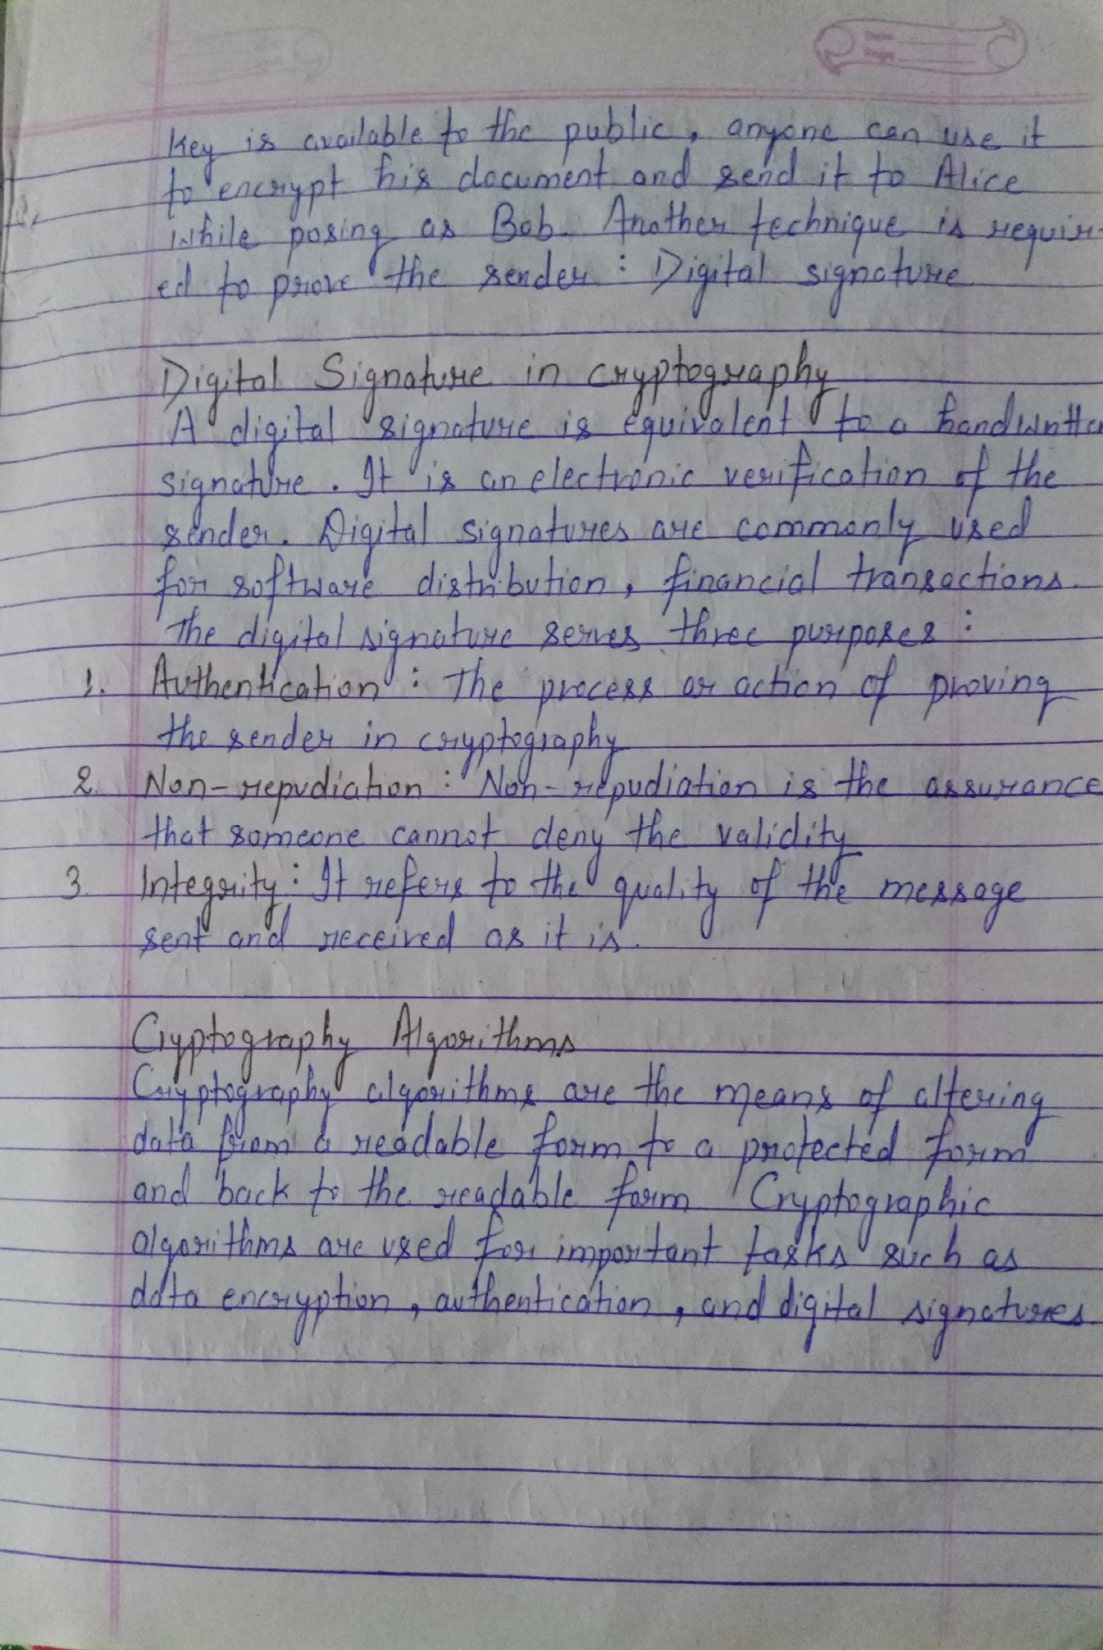 Key is available to the public, anyone can use it
to encrypt his document and send it to Alice
while posing as Bob. Another technique is requir-
ed to prove the sender : Digital signature
Digital Signature in cryptography
A digital signature is equivalent to a handwritten
signature. It is an electronic verification of the
sender. Digital signatures are commonly used
for software distribution, financial transactions.
The digital signature serves three purposes :
1. Authentication : The process or action of proving
the sender in cryptography
2. Non-repudiation : Non-repudiation is the assurance
that someone cannot deny the validity
3. Integrity : It refers to the quality of the message
sent and received as it is.
Cryptography Algorithms
Cryptography algorithms are the means of altering
data from a readable form to a protected form
and back to the readable form Cryptographic
algorithms are used for important tasks such as
data encryption, authentication, and digital signatures.